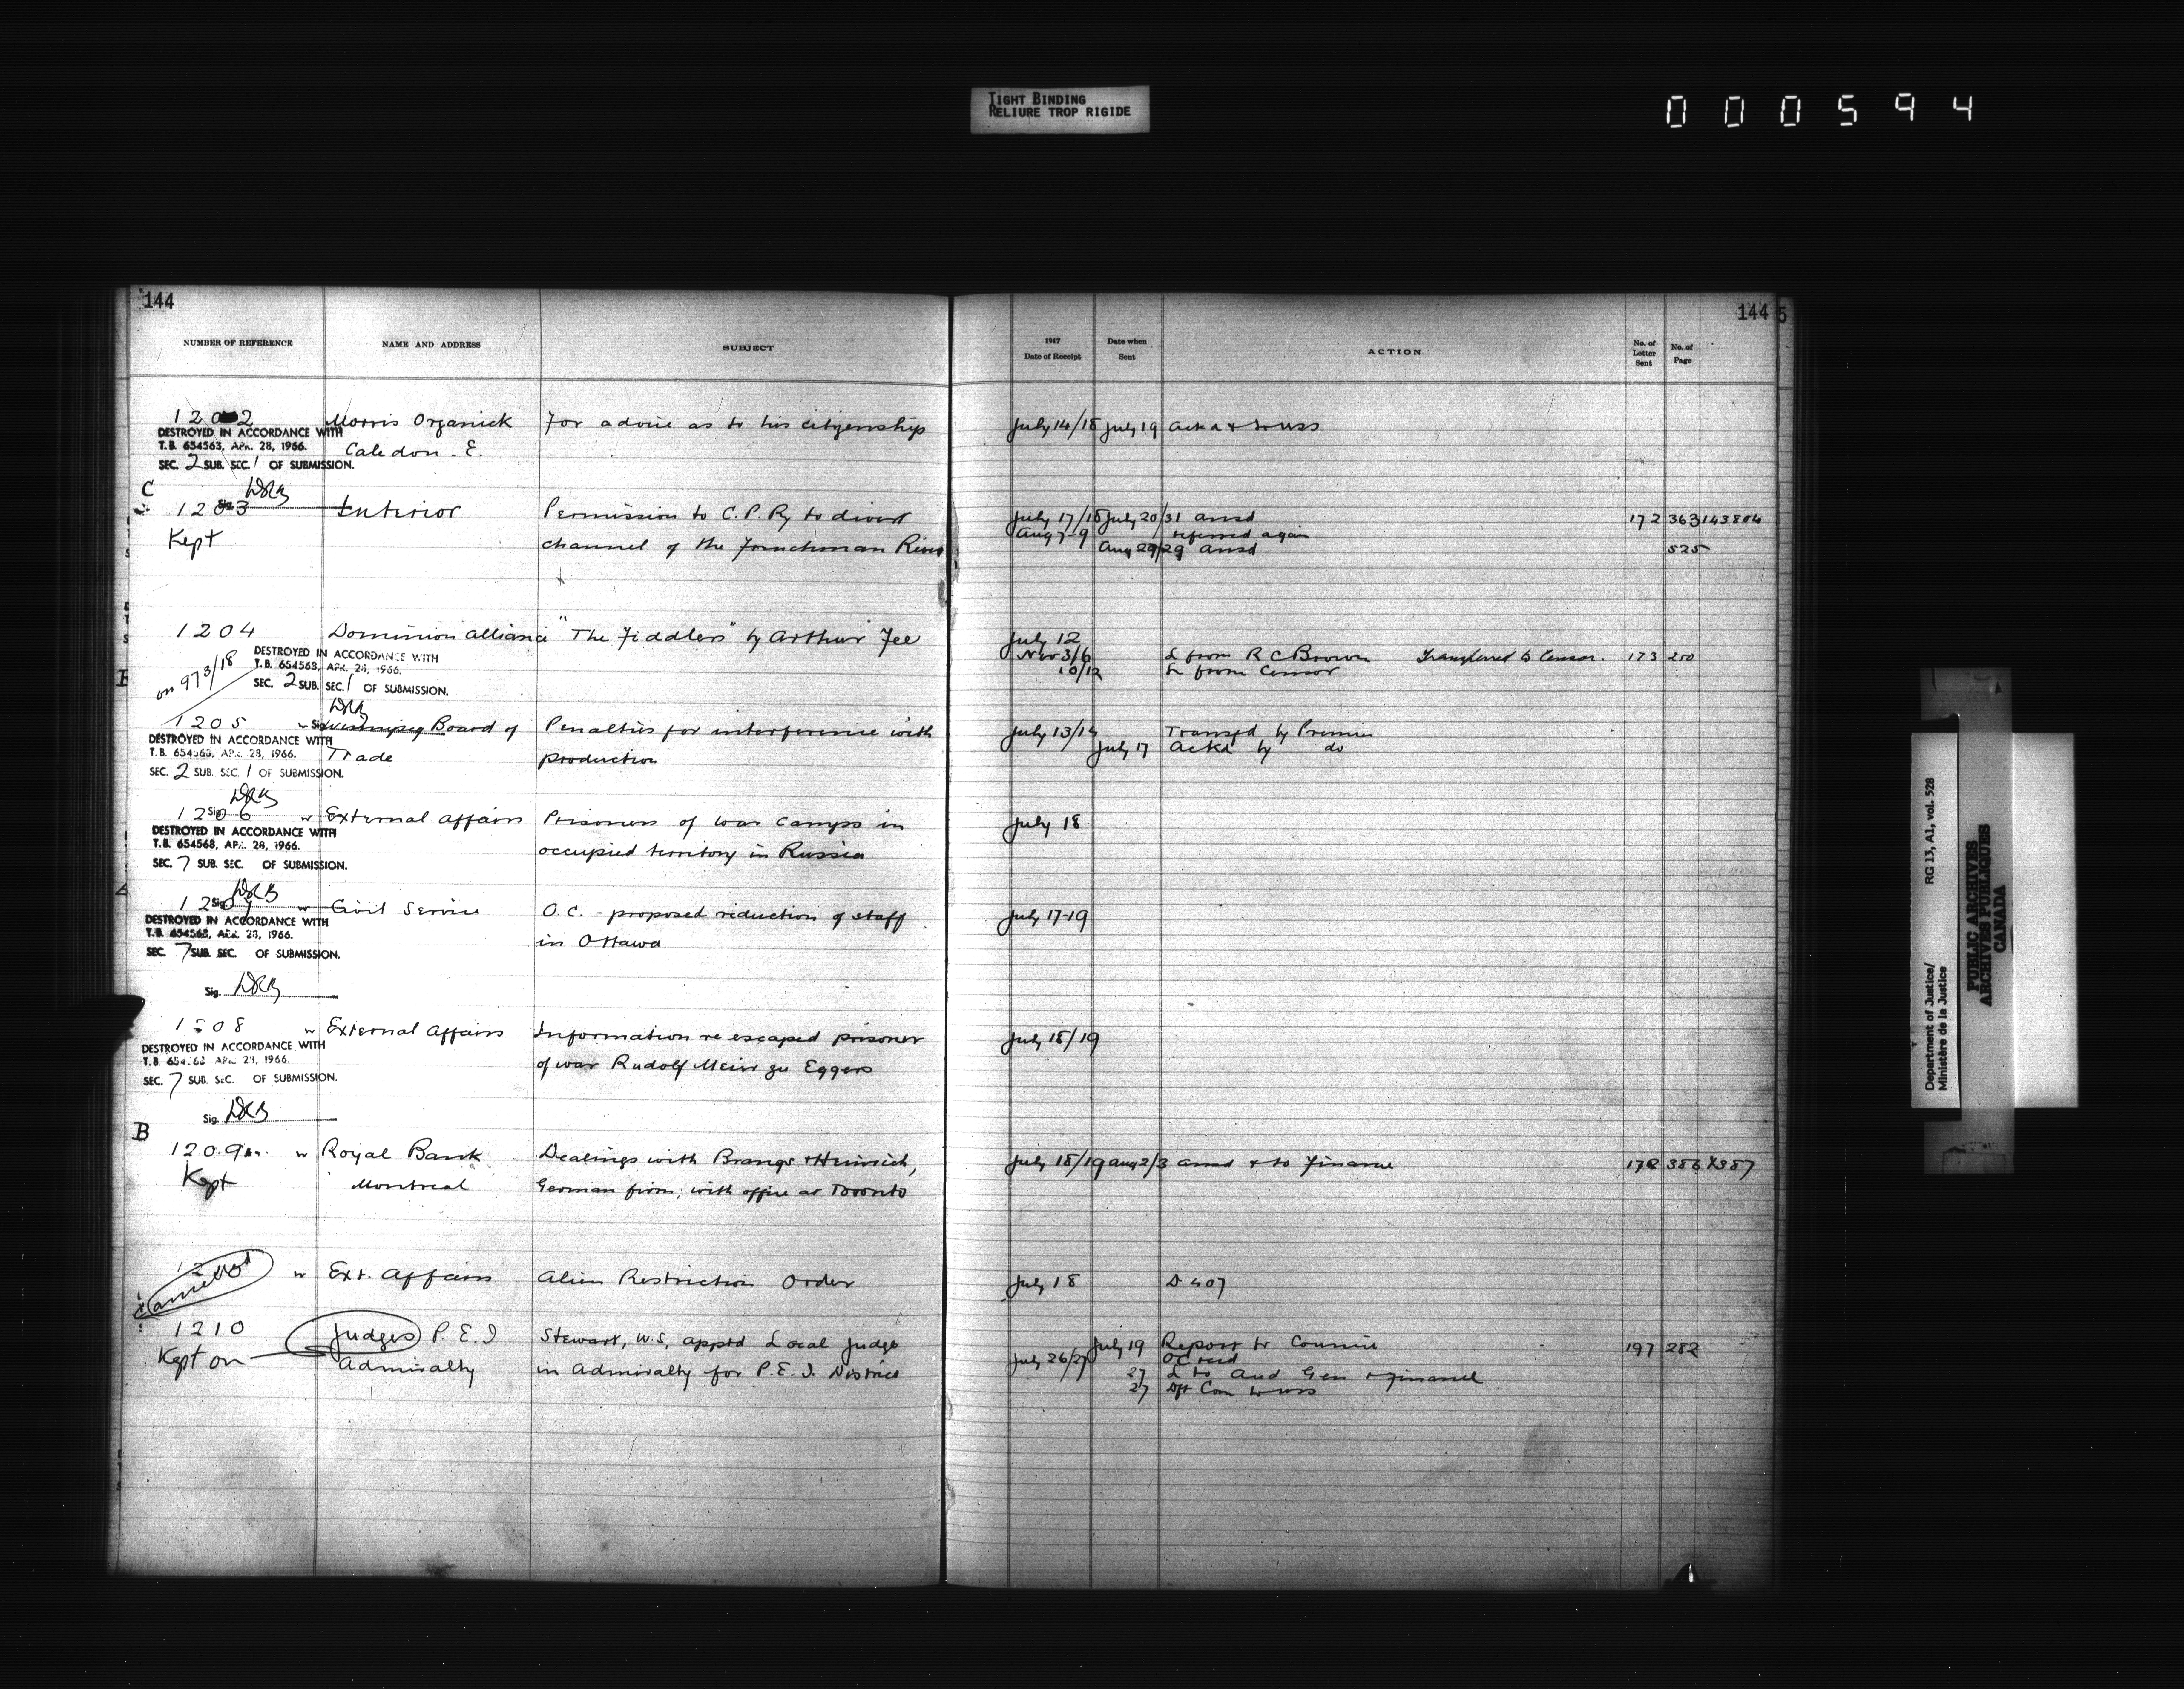 TIGHT BINDING
RELIURE TROP RIGIDE
000594
144
NUMBER OF REFERENCE NAME AND ADDRESS SUBJECT
1202 Morris Organick For advice as to his citizenship
DESTROYED IN ACCORDANCE WITH
T.B. 654563, APR. 28, 1966. Caledon. E.
SEC. 2 SUB. SEC. 1 OF SUBMISSION.
C
DRB
1203 Interior Permission to C.P. Ry to divert
Kept channel of the Frenchman River
1204 Dominion Alliance "The Fiddlers" by Arthur Fee
DESTROYED IN ACCORDANCE WITH
T.B. 654563, APR. 28, 1966.
on 973/18 SEC. 2 SUB. SEC. 1 OF SUBMISSION.
1205 Winnipeg Board of Penalties for interference with
DESTROYED IN ACCORDANCE WITH
T.B. 654563, APR. 28, 1966. Trade production
SEC. 2 SUB. SEC. 1 OF SUBMISSION.
DRB
1206 External Affairs Prisoners of war camps in
DESTROYED IN ACCORDANCE WITH
T.B. 654568, APR. 28, 1966. occupied territory in Russia
SEC. 7 SUB. SEC. OF SUBMISSION.
DRB
1207 Civil Service O.C. - proposed reduction of staff
DESTROYED IN ACCORDANCE WITH
T.B. 654563, APR. 28, 1966. in Ottawa
SEC. 7 SUB. SEC. OF SUBMISSION.
Sig. DRB
1208 External Affairs Information re escaped prisoner
DESTROYED IN ACCORDANCE WITH
T.B. APR. 28, 1966. of war Rudolf Meier zu Eggers
SEC. 7 SUB. SEC. OF SUBMISSION.
Sig. DRB
B
1209 Royal Bank Dealings with Brangs & Heinrich,
Kept Montreal German firm, with office at Toronto
Cancelled Ext. Affairs Alien Restriction Order
1210 Judges P.E.I Stewart, W.S, apptd Local Judge
Kept on Admiralty in Admiralty for P.E.I. District
144
5
1917 Date of Receipt
Date when Sent
ACTION
No. of Letter Sent
No. of Page
July 14/18 July 19
July 17/18 July 20/31 ansd 172 363 143804
Aug 7-9 referred again
Aug 29/29 ansd 525
July 12
Nov 3/6 L from R C Brown Transferred to Censor. 173 250
10/12 L from Censor
July 13/14 Transfd by Premier
July 17 Ackd by do
July 18
July 17-19
July 18/19
July 18/19 Aug 2/3 ansd & to Finance 172 386 & 387
July 18 D 407
July 19 Report to Council 197 282
July 26/27 OC recd
27 L to Aud Gen & Finance
27
Department of Justice/
Ministère de la Justice
RG 13, A1, vol. 528
PUBLIC ARCHIVES
ARCHIVES PUBLIQUES
CANADA